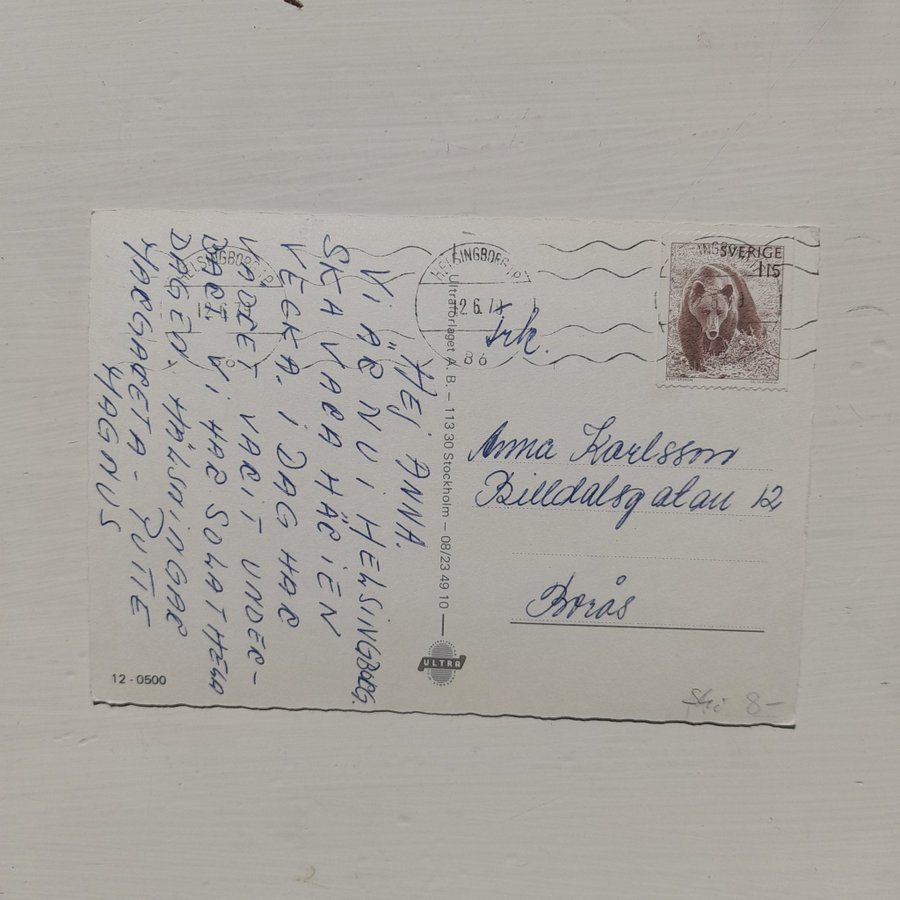 HEJ ANNA.
VI ÄR NU I HELSINGBORG.
SKA VARA HÄR EN
VECKA. I DAG HAR
VÄDRET VARIT UNDER-
BART VI HAR SOLAT HELA
DAGEN. HÄLSNINGAR
MARGARETA - PUTTE
MAGNUS
Ultraförlaget A. B. – 113 30 Stockholm – 08/23 49 10
ULTRA
12 - 0500
HELSINGBORG
86
SVERIGE
115
frk.
Anna Karlsson
Billdalsgatan 12
Borås
8-